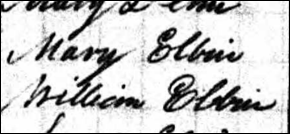 Mary Elbin
William Elbin